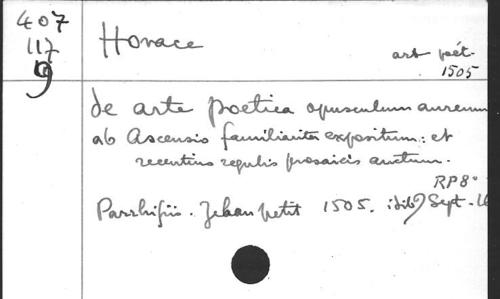 407
117
9
Horace
art poét.
1505
de arte poetica opusculum aureum
ab Ascensio familiariter expositum: et
recentius regulis prosaicis auctum.
RP 8°
Parrhisiis. Jehan petit 1505. idib9 Sept.